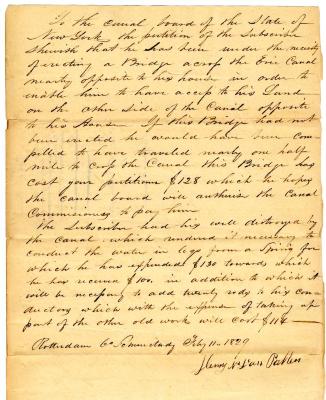 To the Canal board of the State of
New York, the petition of the Subscriber
Sheweth that he has been under the necessity
of erecting a Bridge across the Erie Canal
nearly opposite to his house in order to
enable him to have access to his Land
on the other side of the Canal opposite
to his House. If this Bridge had not
been erected he would have been com
pelled to have traveled nearly one half
mile to cross the Canal this Bridge has
cost your petitioner $128 which he hopes
the Canal board will authorise the Canal
Commissioners to pay him
The Subscriber had his well distroyed by
the Canal, which rendered it necessary to
conduct the water in logs from a Spring for
which he has expended $130 towards which
he has received $100. in addition to which it
will be necessary to add twenty rods to his con
ductors which with the expense of taking up
part of the other old work will cost $114 —
Rotterdam Co Schenectady Feby 11 - 1829
Henry Van Patten